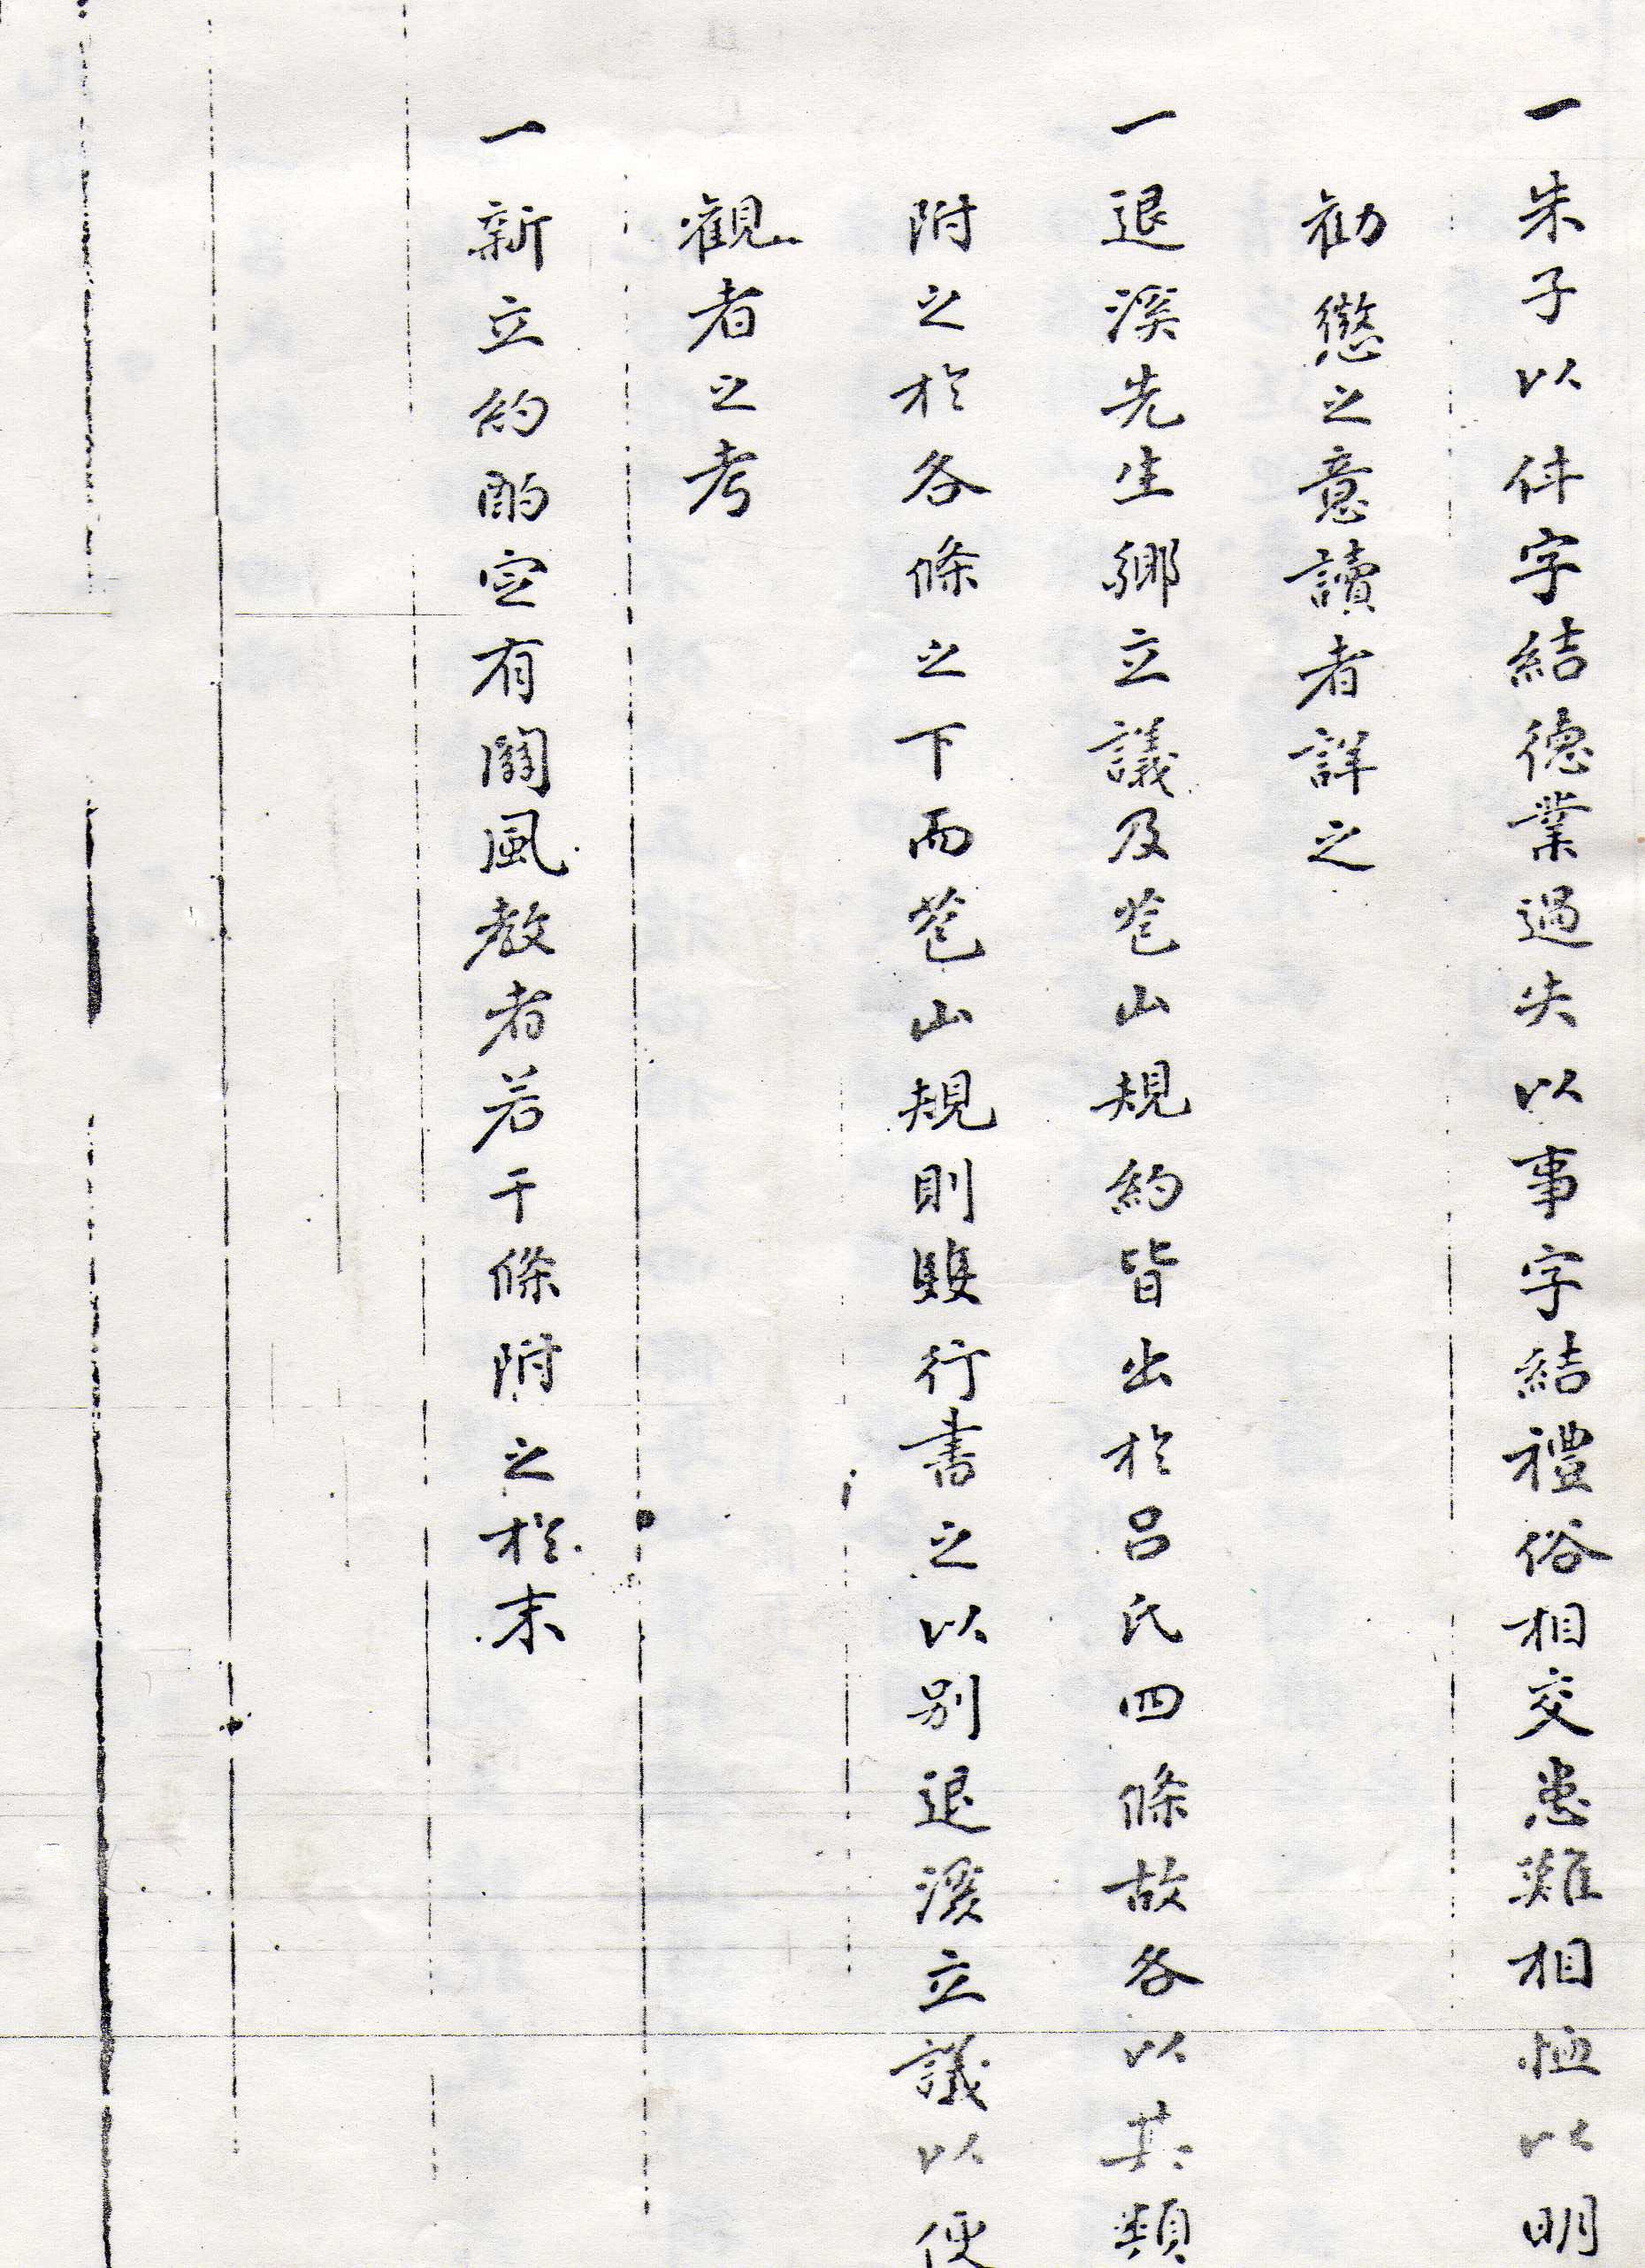 一朱子以件字結德業過失以事字結禮俗相交患難相恤以明
勸懲之意讀者詳之
一退溪先生鄉立議及苞山規約皆出於呂氏四條故各以其類
附之於各條之下而苞山規則雙行書之以別退溪立議以便
觀者之考
一新立約酌定有關風教者若干條附之於末